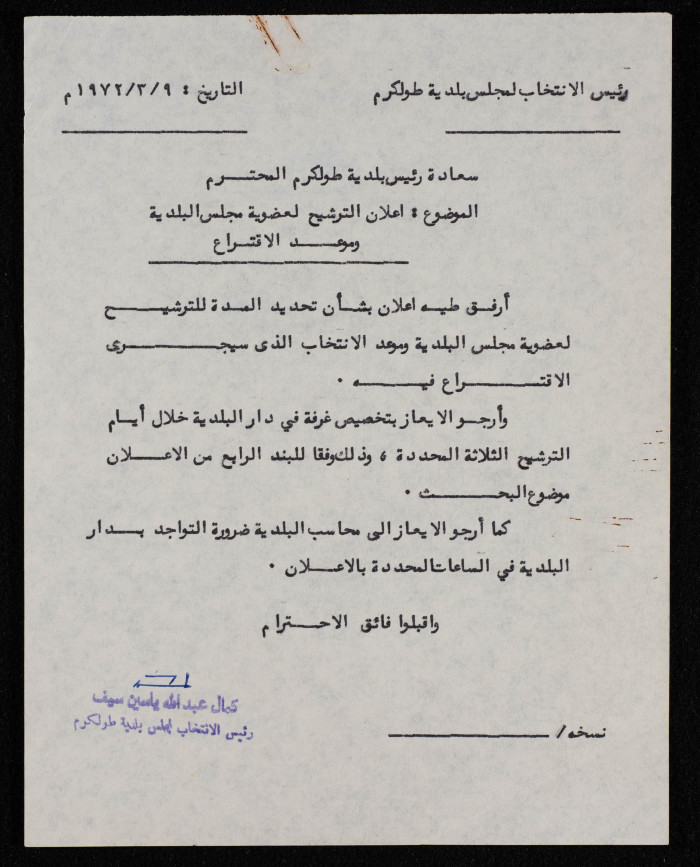 رئيس الانتخاب لمجلس بلدية طولكرم
التاريخ : ١٩٧٢/٣/٩ م
سعادة رئيس بلدية طولكرم المحتـــرم
الموضوع : اعلان الترشيح لعضوية مجلس البلدية
وموعـــد الاقتـراع
أرفـق طيـه اعلان بشـأن تحديد المـدة للترشيـــح
لعضوية مجلس البلدية وموعد الانتخاب الذى سيجـــرى
الاقتـــراع فيـــه .
وأرجـو الايعاز بتخصيص غرفة في دار البلدية خلال أيـام
الترشيح الثلاثة المحددة ، وذلك وفقا للبند الرابع من الاعـلان
موضوع البحـــث .
كما أرجو الايعاز الى محاسب البلدية ضرورة التواجد بـدار
البلدية في الساعات المحددة بالاعـلان .
واقبلوا فائق الاحـترام
كمال عبد الله ياسين سيف
رئيس الانتخاب لمجلس بلدية طولكرم
نسخه /